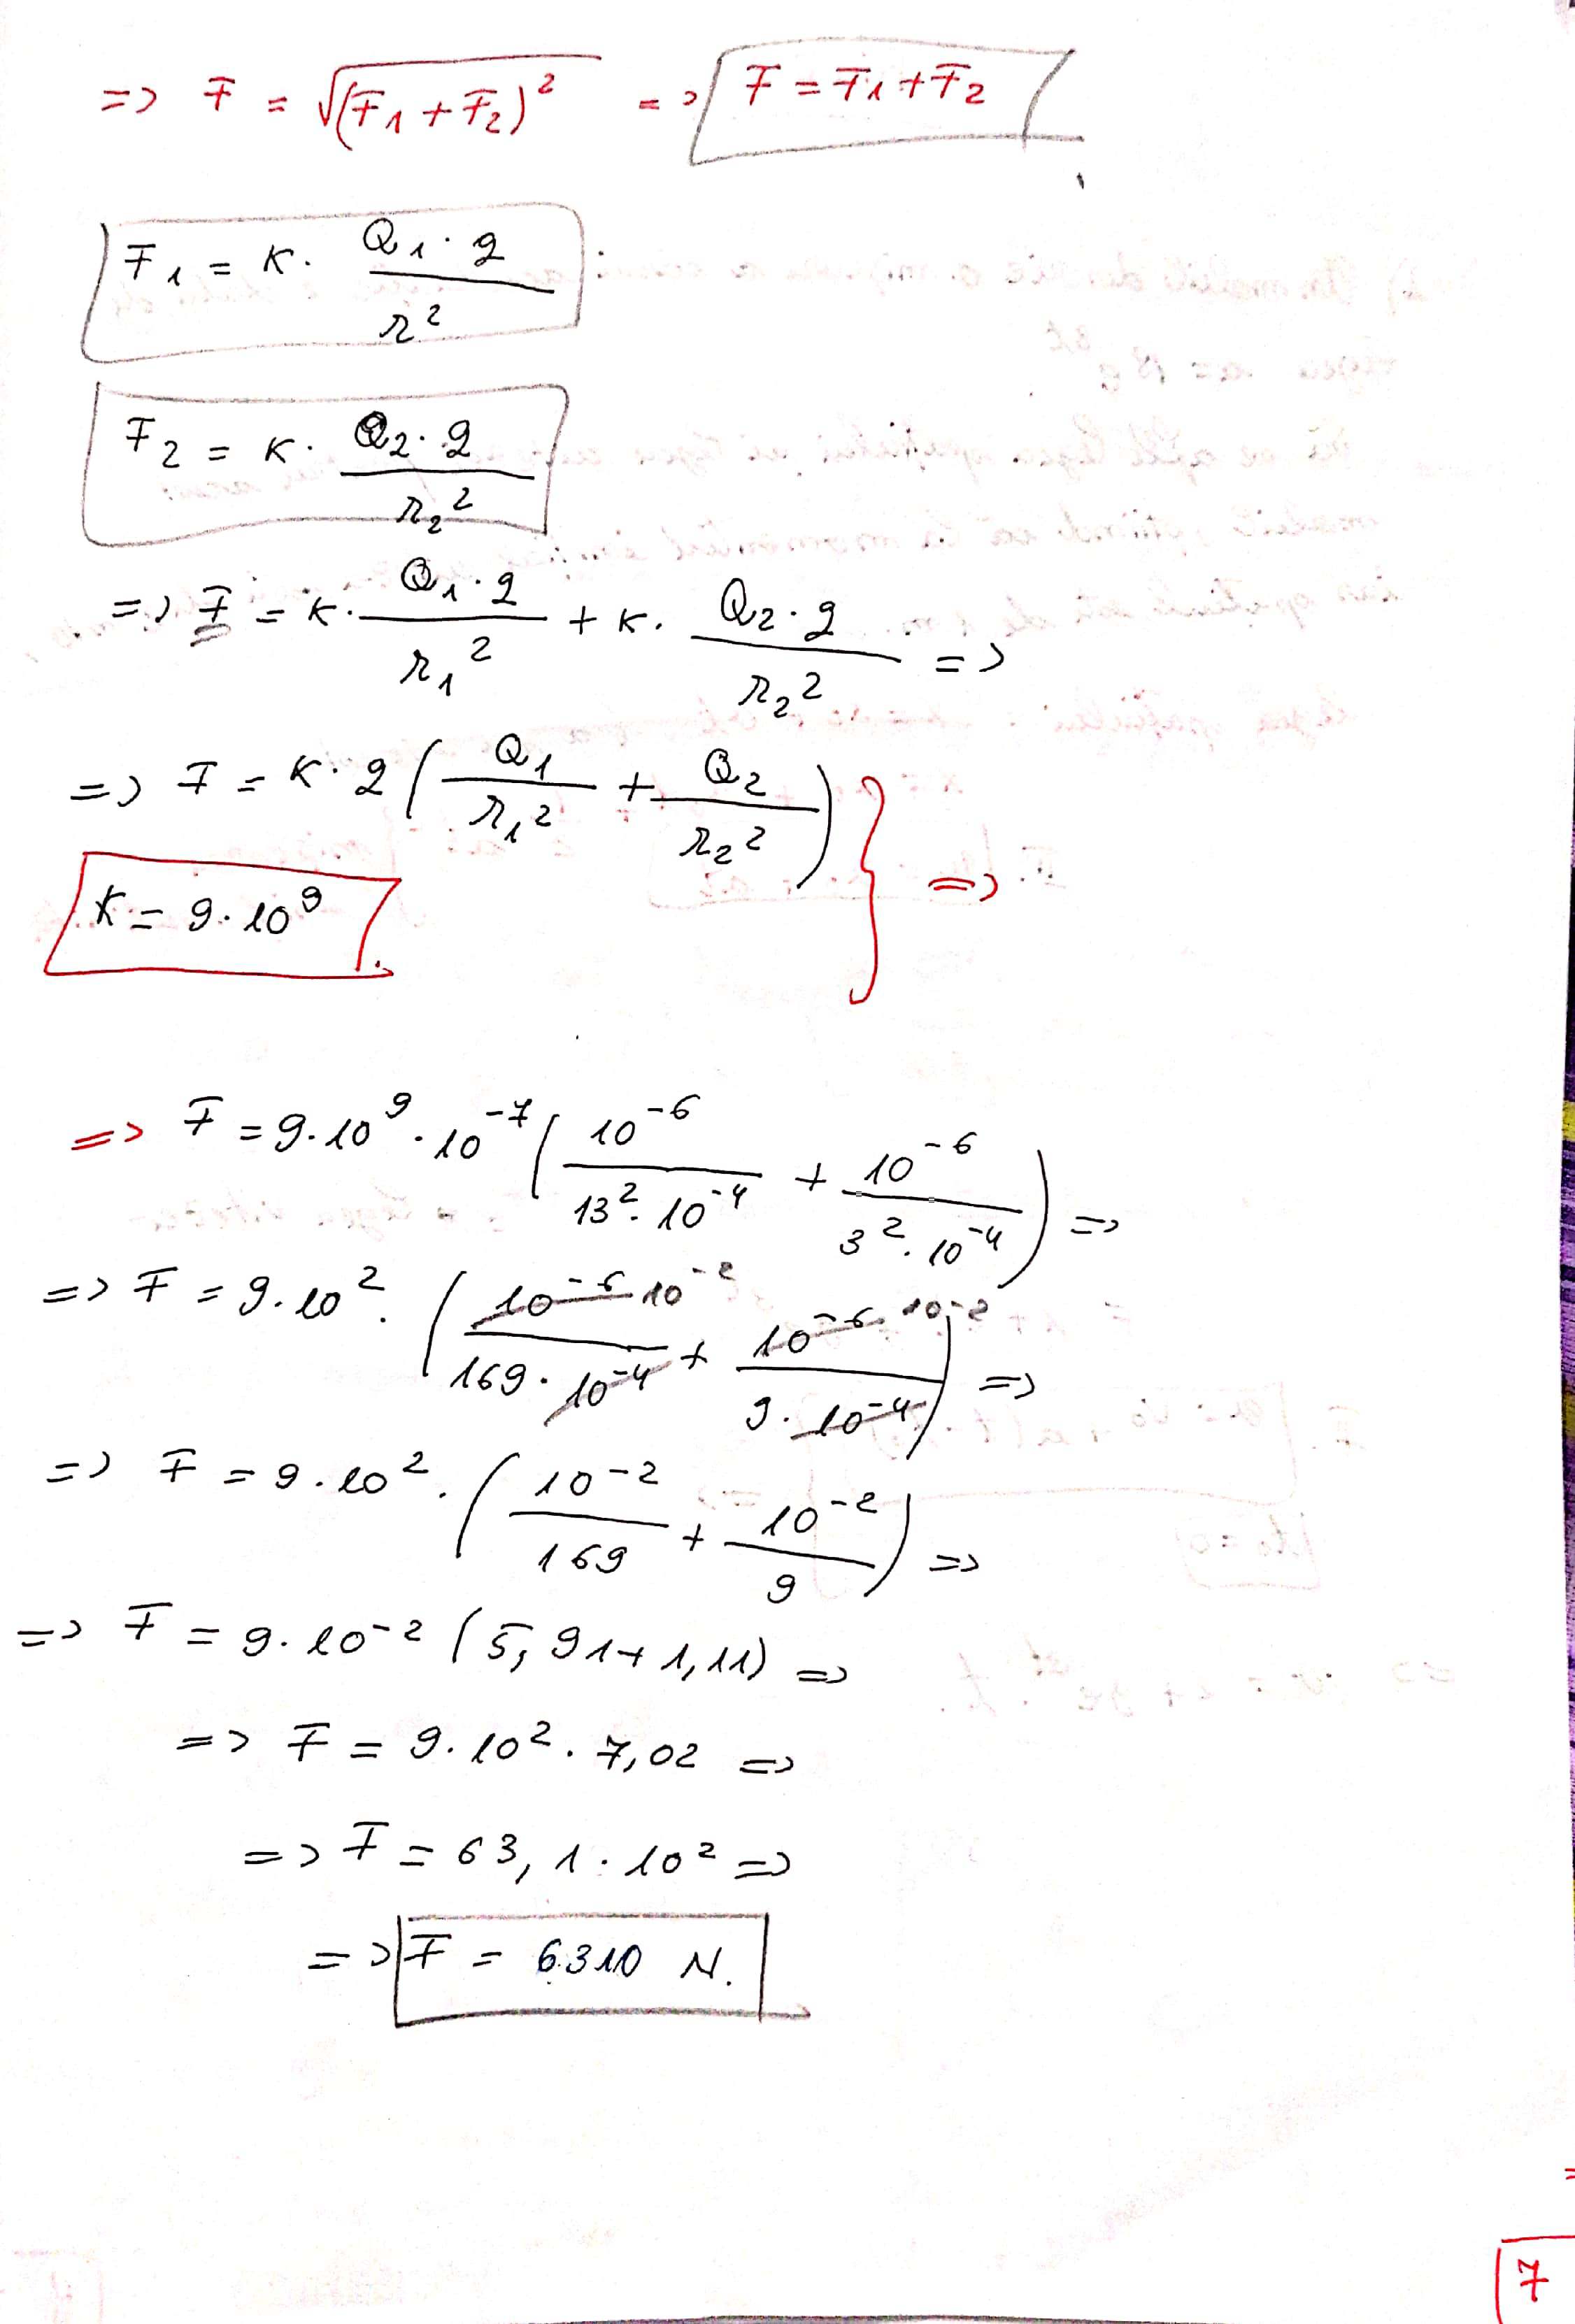 => F = √(F1 + F2)² => F = F1 + F2
F1 = K · Q1 · q / r²
F2 = K · Q2 · q / r2²
=> F = K · Q1 · q / r1² + K · Q2 · q / r2² =>
=> F = K · q ( Q1 / r1² + Q2 / r2² ) } =>
K = 9 · 10⁹
=> F = 9 · 10⁹ · 10⁻⁷ ( 10⁻⁶ / 13² · 10⁻⁴ + 10⁻⁶ / 3² · 10⁻⁴ ) =>
=> F = 9 · 10² · ( 10⁻⁶ 10⁻² / 169 · 10⁻⁴ + 10⁻⁶ · 10⁻² / 9 · 10⁻⁴ ) =>
=> F = 9 · 10² · ( 10⁻² / 169 + 10⁻² / 9 ) =>
=> F = 9 · 10⁻² ( 5,91 + 1,11 ) =>
=> F = 9 · 10² · 7,02 =>
=> F = 63,1 · 10² =>
=> F = 6310 N.
7